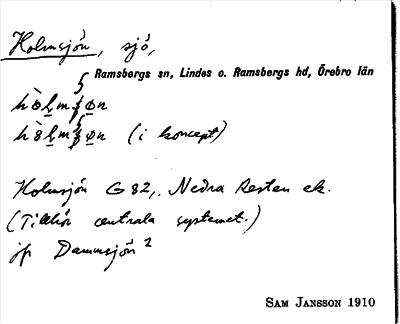 Holmsjön, sjö,
Ramsbergs sn, Lindes o. Ramsbergs hd, Örebro län
(i koncept)
Holmsjön G 82, Nedra delen ek.
(Tillhör centrala systemet.)
jfr Dammsjön 2
SAM JANSSON 1910